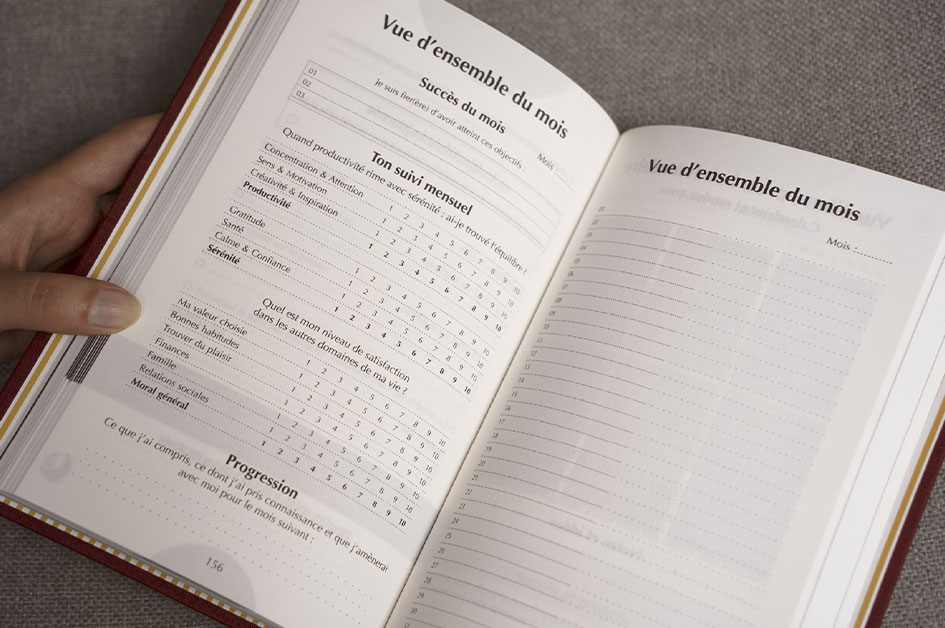 Vue d'ensemble du mois
Mois :
Succès du mois
Je suis fier(ère) d'avoir atteint ces objectifs :
01
02
03
Ton suivi mensuel
Quand productivité rime avec sérénité : ai-je trouvé l'équilibre ?
Concentration & Attention 1 2 3 4 5 6 7 8 9 10
Sens & Motivation 1 2 3 4 5 6 7 8 9 10
Créativité & Inspiration 1 2 3 4 5 6 7 8 9 10
Productivité 1 2 3 4 5 6 7 8 9 10
Gratitude 1 2 3 4 5 6 7 8 9 10
Santé 1 2 3 4 5 6 7 8 9 10
Calme & Confiance 1 2 3 4 5 6 7 8 9 10
Sérénité 1 2 3 4 5 6 7 8 9 10
Quel est mon niveau de satisfaction
dans les autres domaines de ma vie ?
Ma valeur choisie 1 2 3 4 5 6 7 8 9 10
Bonnes habitudes 1 2 3 4 5 6 7 8 9 10
Trouver du plaisir 1 2 3 4 5 6 7 8 9 10
Finances 1 2 3 4 5 6 7 8 9 10
Famille 1 2 3 4 5 6 7 8 9 10
Relations sociales 1 2 3 4 5 6 7 8 9 10
Moral général 1 2 3 4 5 6 7 8 9 10
Progression
Ce que j'ai compris, ce dont j'ai pris connaissance et que j'amènerai
avec moi pour le mois suivant :
156
Vue d'ensemble du mois
Mois :
01
02
03
04
05
06
07
08
09
10
11
12
13
14
15
16
17
18
19
20
21
22
23
24
25
26
27
28
29
30
31